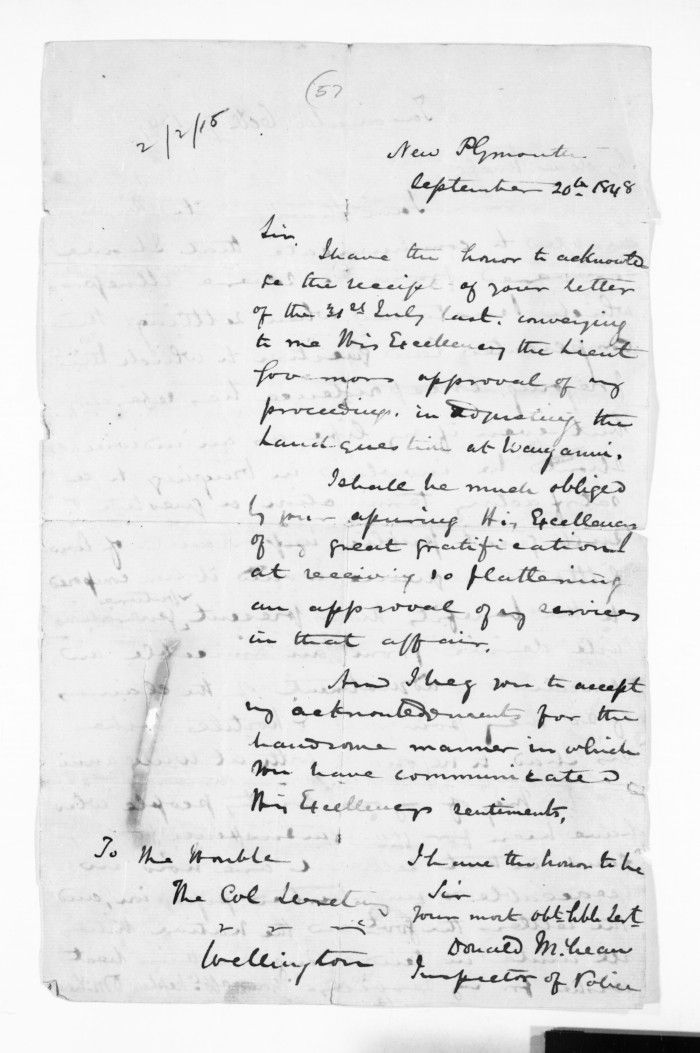 57
2/2/15
New Plymouth
September 20th 1848
Sir,
I have the honor to acknowled
ge the receipt of your letter
of the 31st July last. conveying
to me His Excellency the Lieut
Governors approval of my
proceedings. in adjusting the
Land question at Wanganui.
I shall be much obliged
by your assuring His Excellency
of my great gratification
at receiving so flattering
an approval of my services
in that affair.
And I beg you to accept
my acknowledgements for the
handsome manner in which
you have communicated
His Excellencys sentiments.
I have the honor to be
Sir
Your most obt hble Servt
Donald McLean
Inspector of Police
To The Honble
The Col Secretary
Wellington